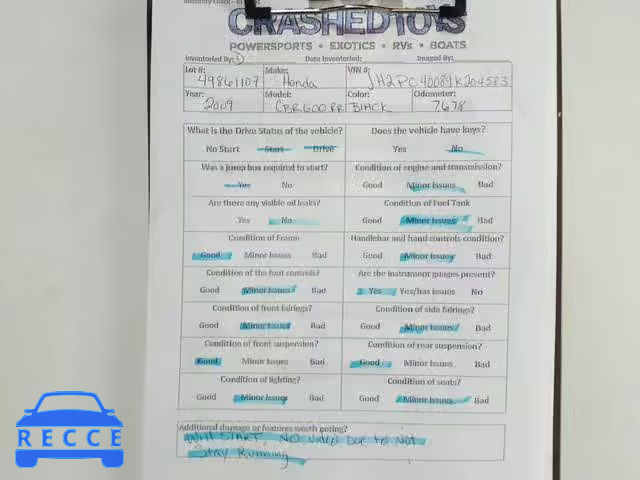 Inventory Check - In
CRASHEDTOYS
POWERSPORTS • EXOTICS • RVs • BOATS
Inventoried By: D Date Inventoried: Imaged By:
Lot #: 49861107 Make: Honda VIN #: JH2PC40089K204583
Year: 2009 Model: CBR600RR Color: BLACK Odometer: 7678
What is the Drive Status of the vehicle? Does the vehicle have keys?
No Start Start Drive Yes No
Was a jump box required to start? Condition of engine and transmission?
Yes No Good Minor Issues Bad
Are there any visible oil leaks? Condition of Fuel Tank
Yes No Good Minor Issues Bad
Condition of Frame Handlebar and hand controls condition?
Good Minor Issues Bad Good Minor Issues Bad
Condition of the foot controls? Are the instrument gauges present?
Good Minor Issues Bad Yes Yes/has issues No
Condition of front fairings? Condition of side fairings?
Good Minor Issues Bad Good Minor Issues Bad
Condition of front suspension? Condition of rear suspension?
Good Minor Issues Bad Good Minor Issues Bad
Condition of lighting? Condition of seats?
Good Minor Issues Bad Good Minor Issues Bad
Additional damage or features worth noting?
Will START, NO Video Due to Not
Stay Running
RECCE